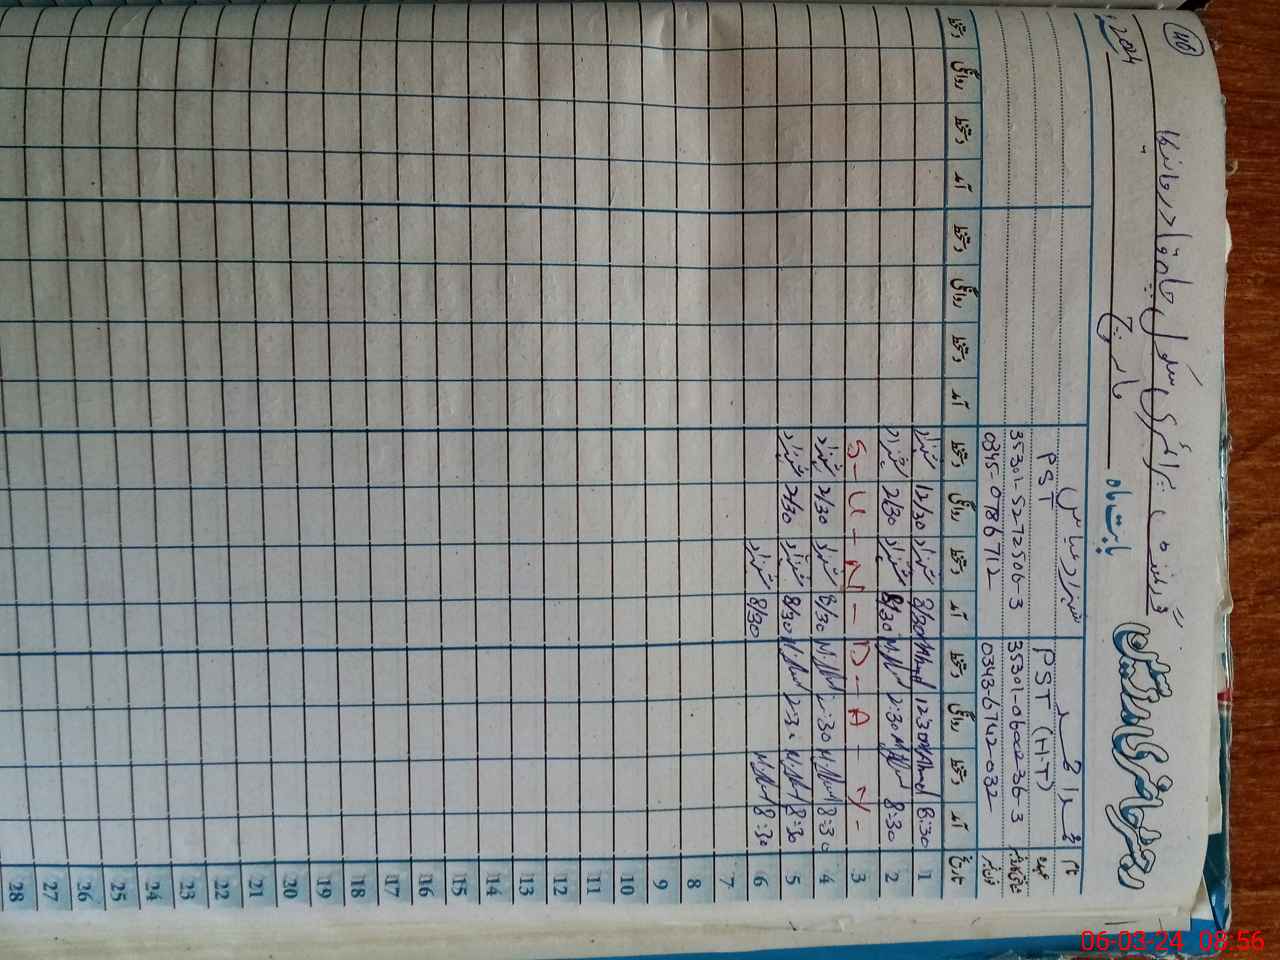 46
رجسٹر حاضری مدرسین
گورنمنٹ پرائمری سکول
بابت ماہ مارچ 2024ء
نام محمد احمد شہزاد عباس
عہدہ PST (H-T) PST
شناختی کارڈ نمبر 35301-0600236-3 35301-5272506-3
فون نمبر 0343-6742032 0345-0786712
تاریخ آمد دستخط روانگی دستخط آمد دستخط روانگی دستخط آمد دستخط روانگی دستخط آمد دستخط روانگی دستخط
1 8:30 M.Ahmed 12:30 M.Ahmed 8/30 شہزاد 12/30 شہزاد
2 8:30 2:30 8/30 شہزاد 2/30 شہزاد
3 S-U-N-D-A-Y-
4 8:30 2:30 8/30 شہزاد 2/30 شہزاد
5 8:30 2:30 8/30 شہزاد 2/30 شہزاد
6 8:30 8/30 شہزاد
7
8
9
10
11
12
13
14
15
16
17
18
19
20
21
22
23
24
25
26
27
28
06-03-24 08:56